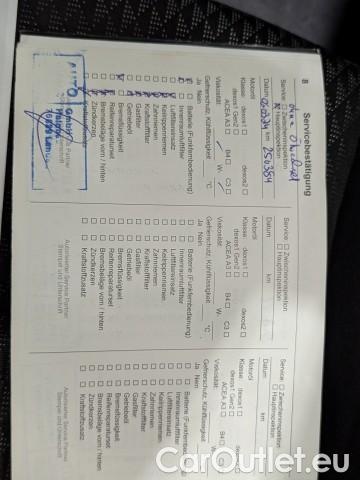 8
Servicebestätigung
Service: Zwischeninspektion
Hauptinspektion
Datum km 250384
Motoröl
Klasse: dexos1 dexos2
dexos1 Gen2
ACEA A3 B4 C3
Viskosität: W-
Gefrierschutz, Kühlflüssigkeit: °C
Ja Nein
Batterie (Funkfernbedienung)
Innenraumluftfilter
Luftfiltereinsatz
Keilrippenriemen
Zahnriemen
Kraftstofffilter
Gasfilter
Getriebeöl
Bremsflüssigkeit
Reifenreparaturset
Bremsbeläge vorn / hinten
Zündkerzen
Kraftstoffzusatz
AUTO
Service: Zwischeninspektion
Hauptinspektion
Datum km
Motoröl
Klasse: dexos1 dexos2
dexos1 Gen2
ACEA A3 B4 C3
Viskosität: W-
Gefrierschutz, Kühlflüssigkeit: °C
Ja Nein
Batterie (Funkfernbedienung)
Innenraumluftfilter
Luftfiltereinsatz
Keilrippenriemen
Zahnriemen
Kraftstofffilter
Gasfilter
Getriebeöl
Bremsflüssigkeit
Reifenreparaturset
Bremsbeläge vorn / hinten
Zündkerzen
Kraftstoffzusatz
Autorisierter Service Partner
Stempel und Unterschrift
Service: Zwischeninspektion
Hauptinspektion
Datum km
Motoröl
Klasse: dexos1
dexos1 Gen2
ACEA A3
Viskosität:
Gefrierschutz, Kühlflüssigkeit:
Ja Nein
Batterie (Funkfernbedienung)
Innenraumluftfilter
Luftfiltereinsatz
Keilrippenriemen
Zahnriemen
Kraftstofffilter
Gasfilter
Getriebeöl
Bremsflüssigkeit
Reifenreparaturset
Bremsbeläge vorn / hinten
Zündkerzen
Kraftstoffzusatz
Autorisierter Service Partner
Stempel und Unterschrift
CarOutlet.eu